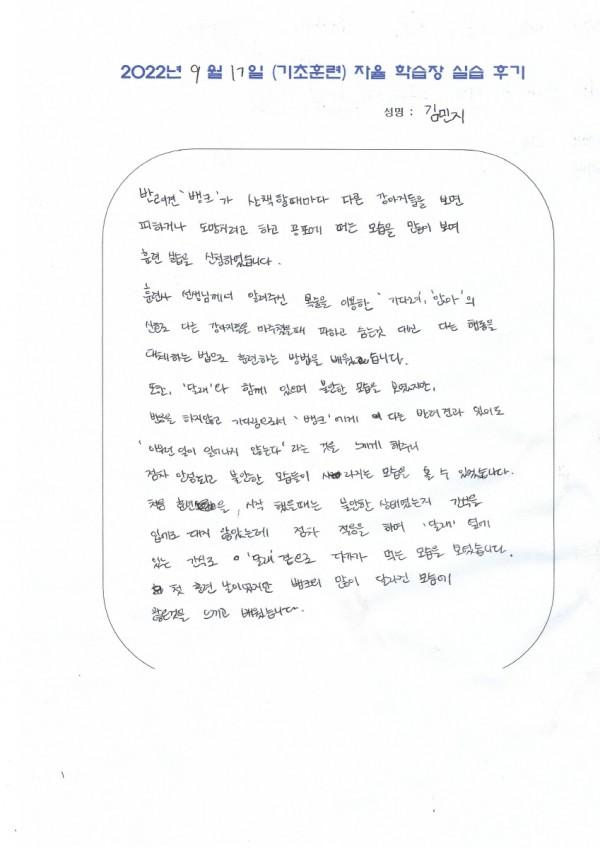 2022년 9월 17일 (기초훈련) 자율 학습장 실습 후기
성명 : 김민지
반려견 '뱅크'가 산책할때마다 다른 강아지들을 보면
피하거나 도망가려고 하고 공포에 떠는 모습을 많이 보며
훈련 신청하였습니다.
훈련사 선생님께서 알려주신 목줄을 이용한 '기다려', '앉아'의
신호로 다른 강아지들을 마주쳤을때 피하고 숨는것 대신 다른 행동을
대체하는 법으로 훈련하는 방법을 배웠습니다.
또한, '달래'와 함께 있으며 불안한 모습을 보였지만,
반응을 하지않고 기다림으로서 '뱅크'에게 다른 반려견과 있어도
'아무런 일이 일어나지 않는다' 라는 것을 느끼게 해주니
점차 안정되고 불안한 모습들이 사라지는 모습을 볼 수 있었습니다.
처음 훈련을, 시작 했을때는 불안한 상태였는지 간식을
입에도 대지 않았는데 점차 적응을 하며 '달래' 옆에
있는 간식도 '달래' 곁으로 다가가 먹는 모습을 보였습니다.
첫 훈련 날이였지만 뱅크의 많이 달라진 모습에
많은것을 느끼고 배웠습니다.